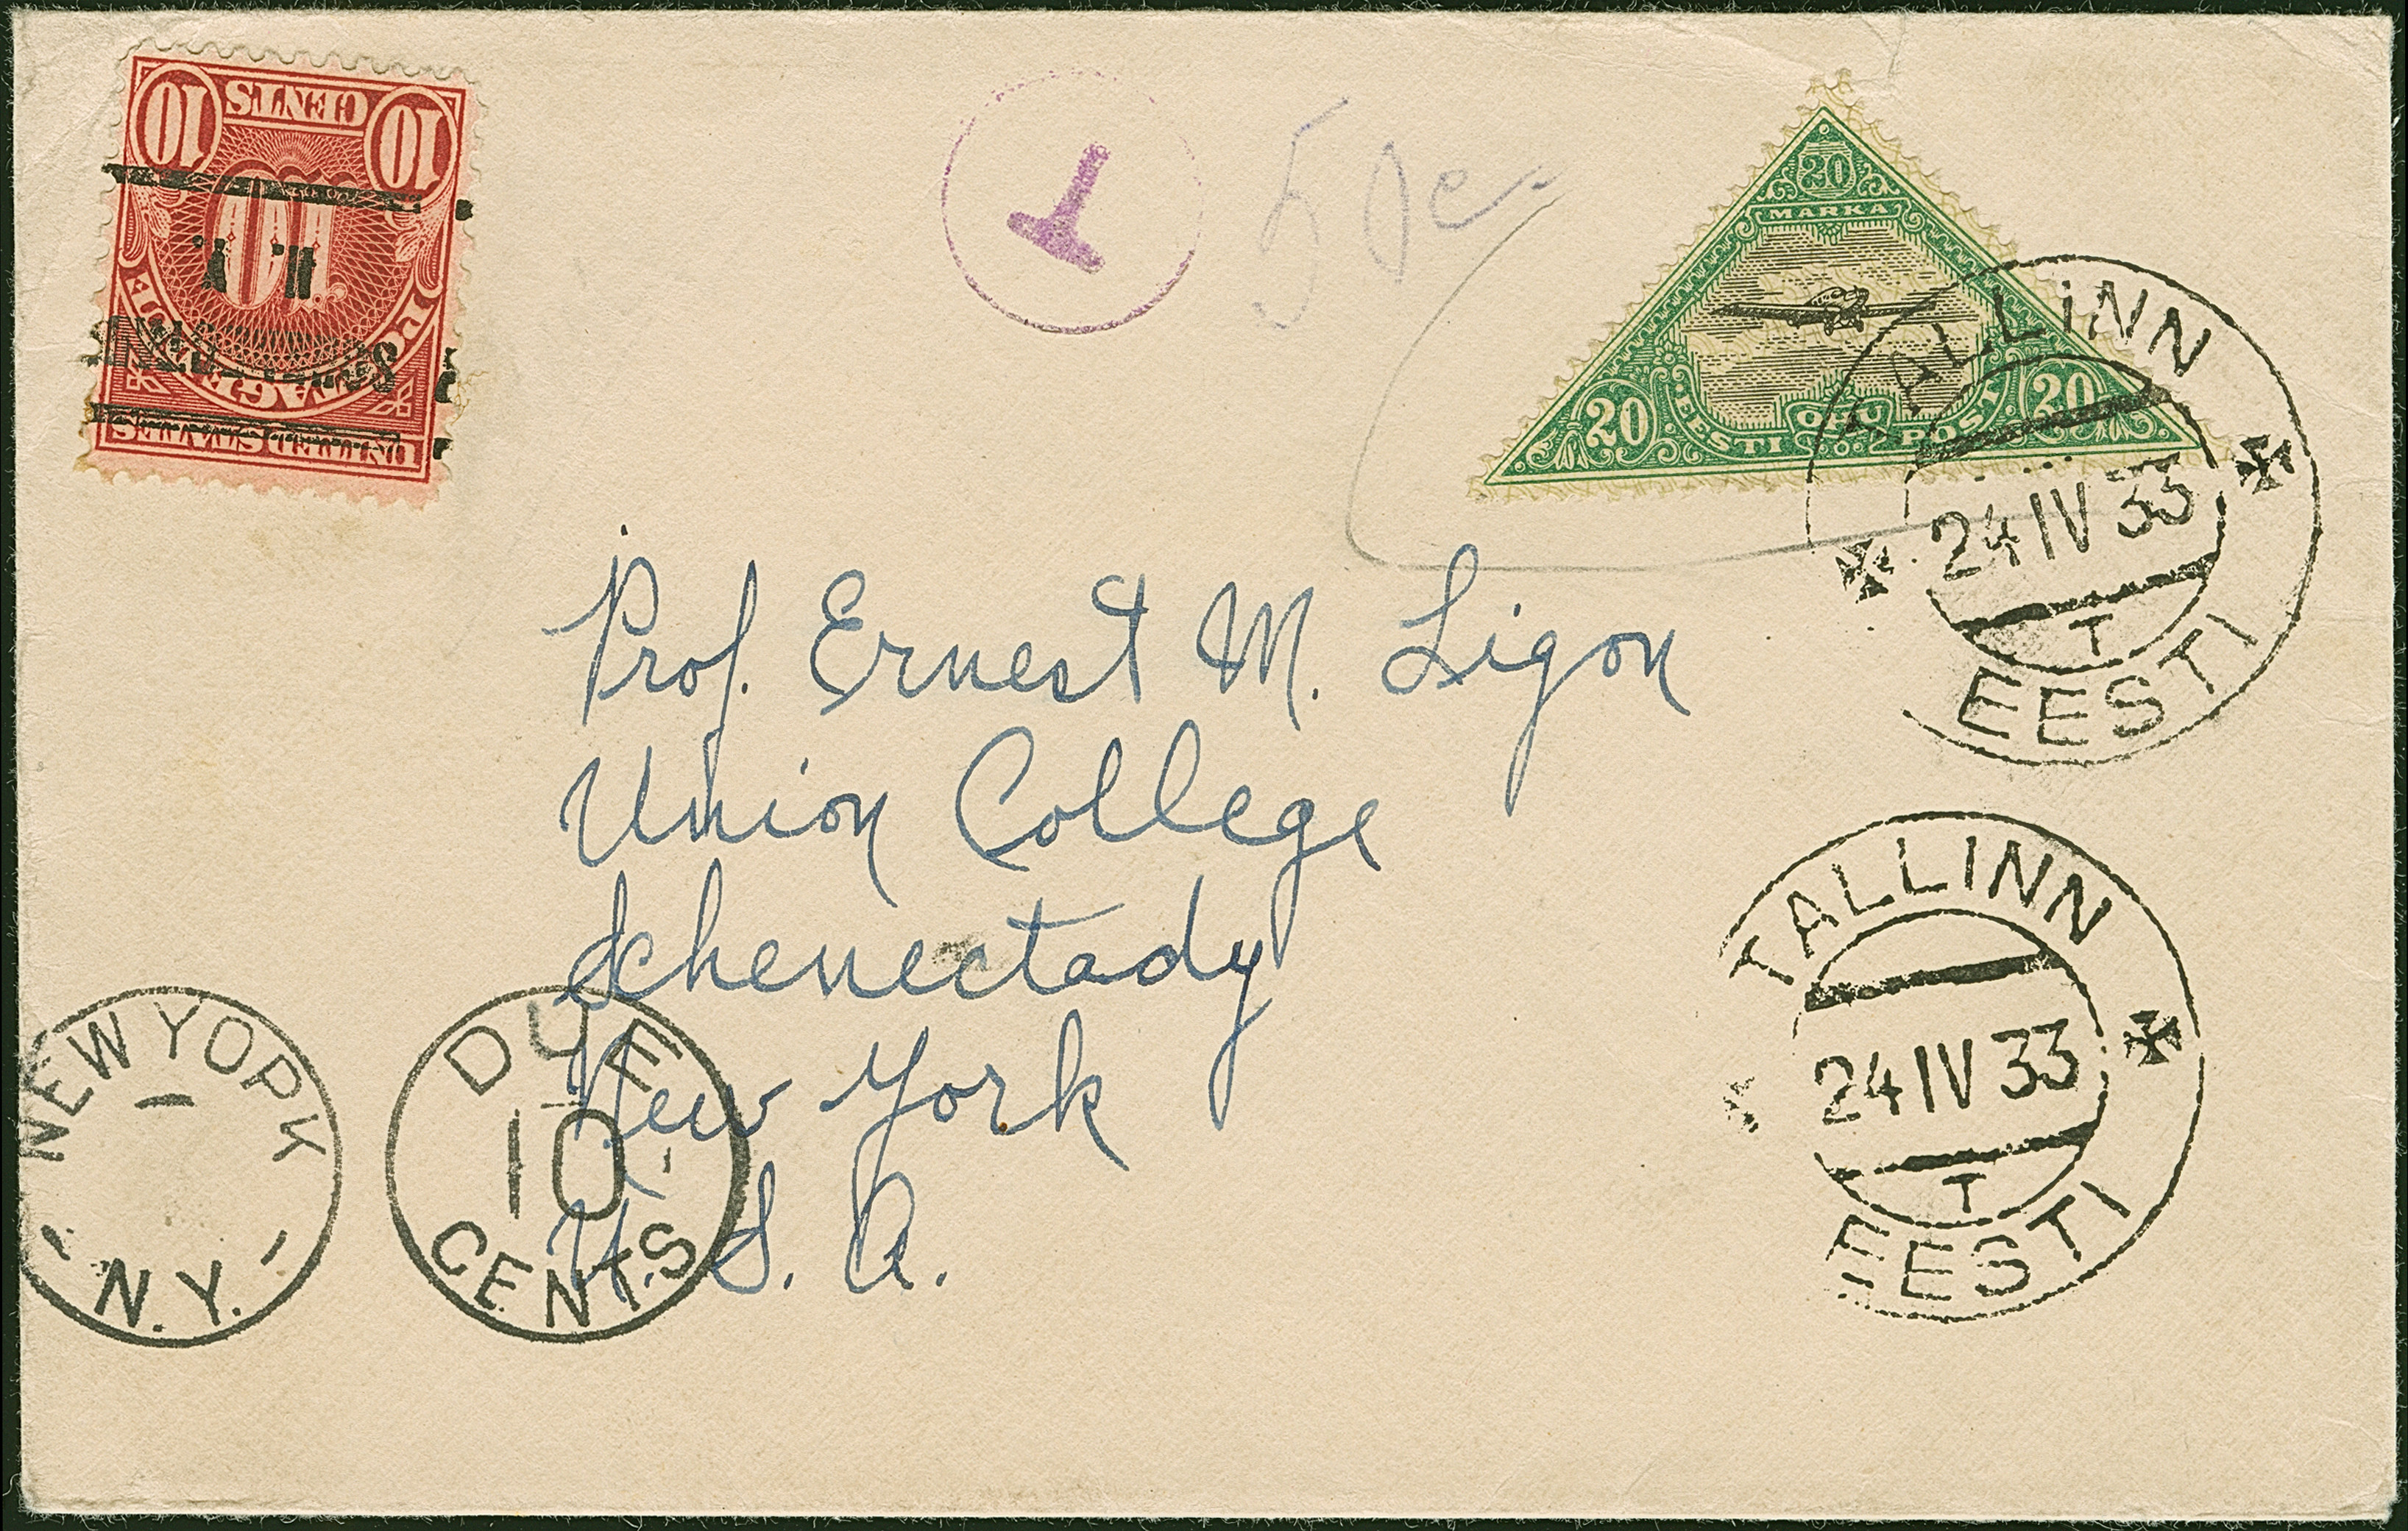 10 CENTS 10
10
N. Y.
POSTAGE DUE
UNITED STATES
T
50 c.
20
MARKA
20 EESTI ÕHU POST 20
TALLINN
24 IV 33
T
EESTI
Prof. Ernest M. Ligon
Union College
Schenectady
New York
U. S. A.
TALLINN
24 IV 33
T
EESTI
NEW YORK
N. Y.
DUE
10
CENTS